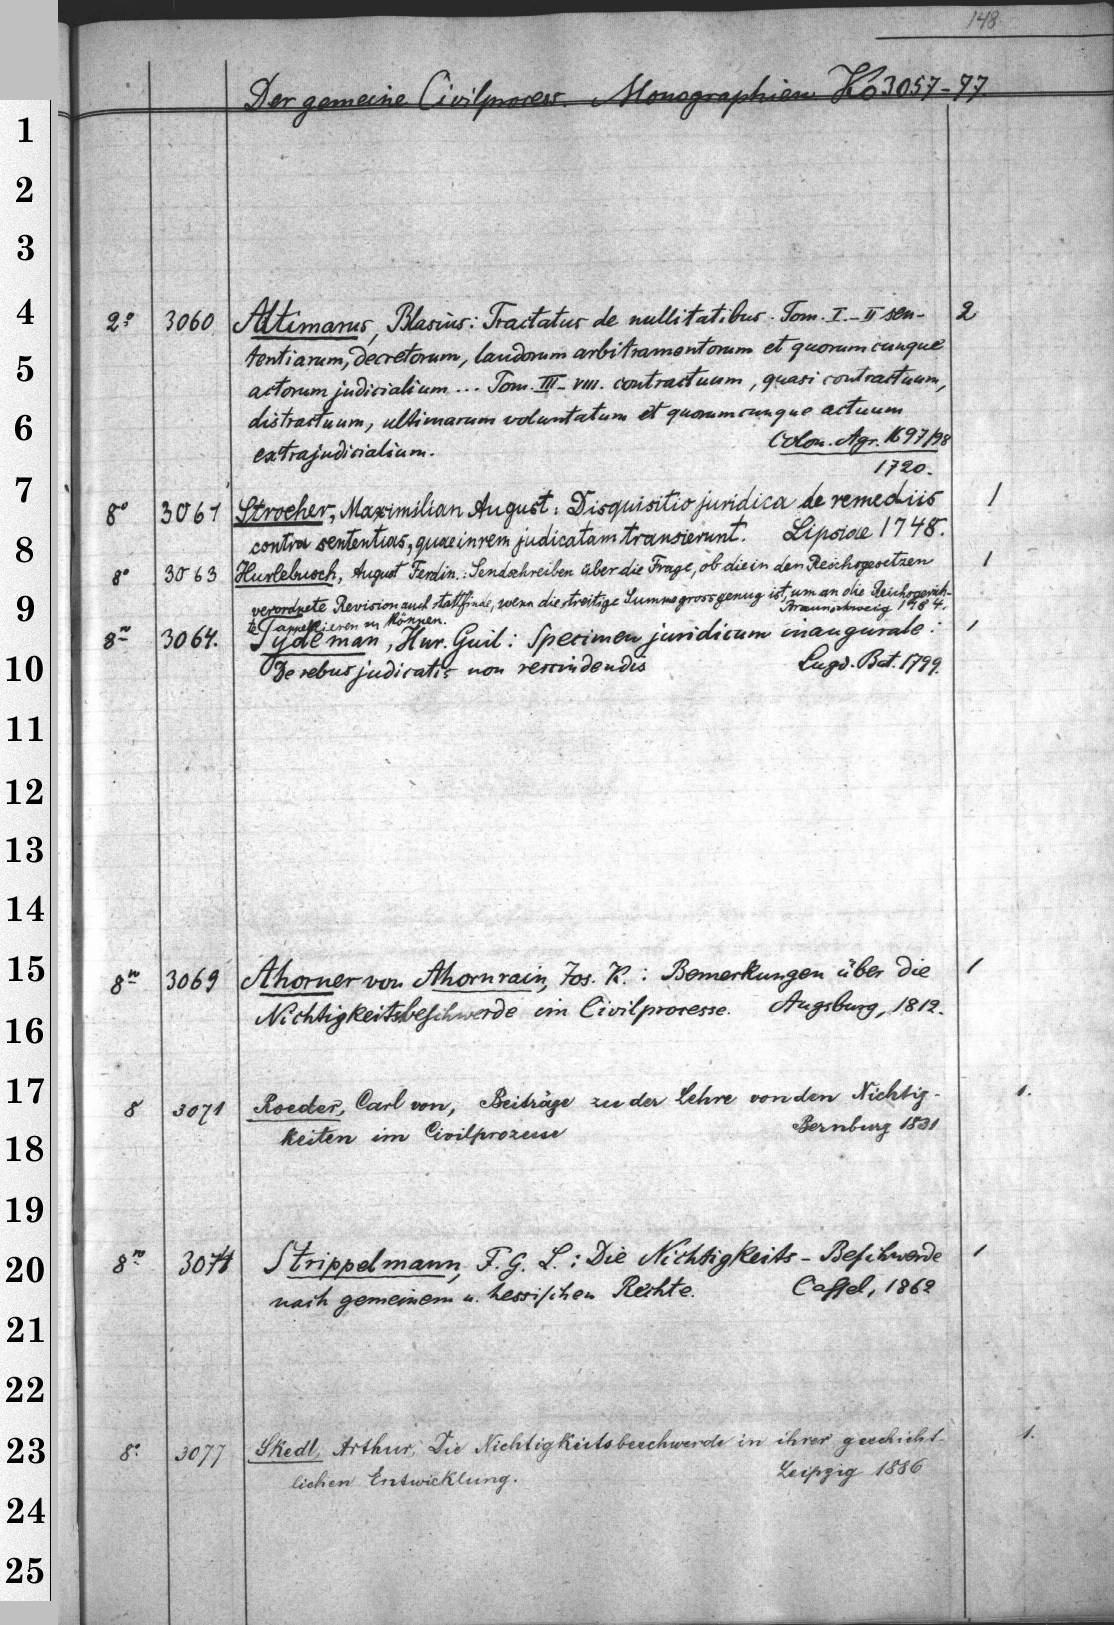 148
Der gemeine Civilprocess. Monographien Ko 3057-77.
1
2
3
4 2º 3060 Altimarus, Blasius: Tractatus de nullitatibus. Tom. I-II sen- 2
tentiarum, decretorum, laudorum arbitramentorum et quorumcunque
5 actorum judicialium ... Tom. III-VIII. contractuum, quasi contractuum,
6 distractuum, ultimarum voluntatum et quorumcunque actuum
extrajudicialium. Colon. Agr. 1697/98
1720.
7 8º 3061 Stroeher, Maximilian August: Disquisitio juridica de remediis 1
8 contra sententias, quae in rem judicatam transierunt. Lipsiae 1748.
8º 3063 Hurlebusch, August Ferdin.: Sendschreiben über die Frage, ob die in den Reichsgesetzen 1
9 verordnete Revision auch stattfinde, wenn die streitige Summe gross genug ist, um an die Reichsgerich-
te appellieren zu können. Braunschweig 1784.
8º 3064. Tydeman, Hnr. Guil: Specimen juridicum inaugurale: 1
10 De rebus judicatis non rescindendis Lugd. Bat. 1799.
11
12
13
14
15 8º 3069 Ahorner von Ahornrain, Jos. K.: Bemerkungen über die 1
16 Nichtigkeitsbeschwerde im Civilprocesse. Augsburg, 1812.
17 8 3071 Roeder, Carl von, Beiträge zu der Lehre von den Nichtig- 1.
18 keiten im Civilprozesse Bernburg 1831
19
20 8º 3074 Strippelmann, F. G. L.: Die Nichtigkeits-Beschwerde 1
nach gemeinem u. hessischen Rechte. Cassel, 1862
21
22
23 8º. 3077 Skedl, Arthur, Die Nichtigkeitsbeschwerde in ihrer geschicht- 1.
lichen Entwicklung. Leipzig 1886
24
25